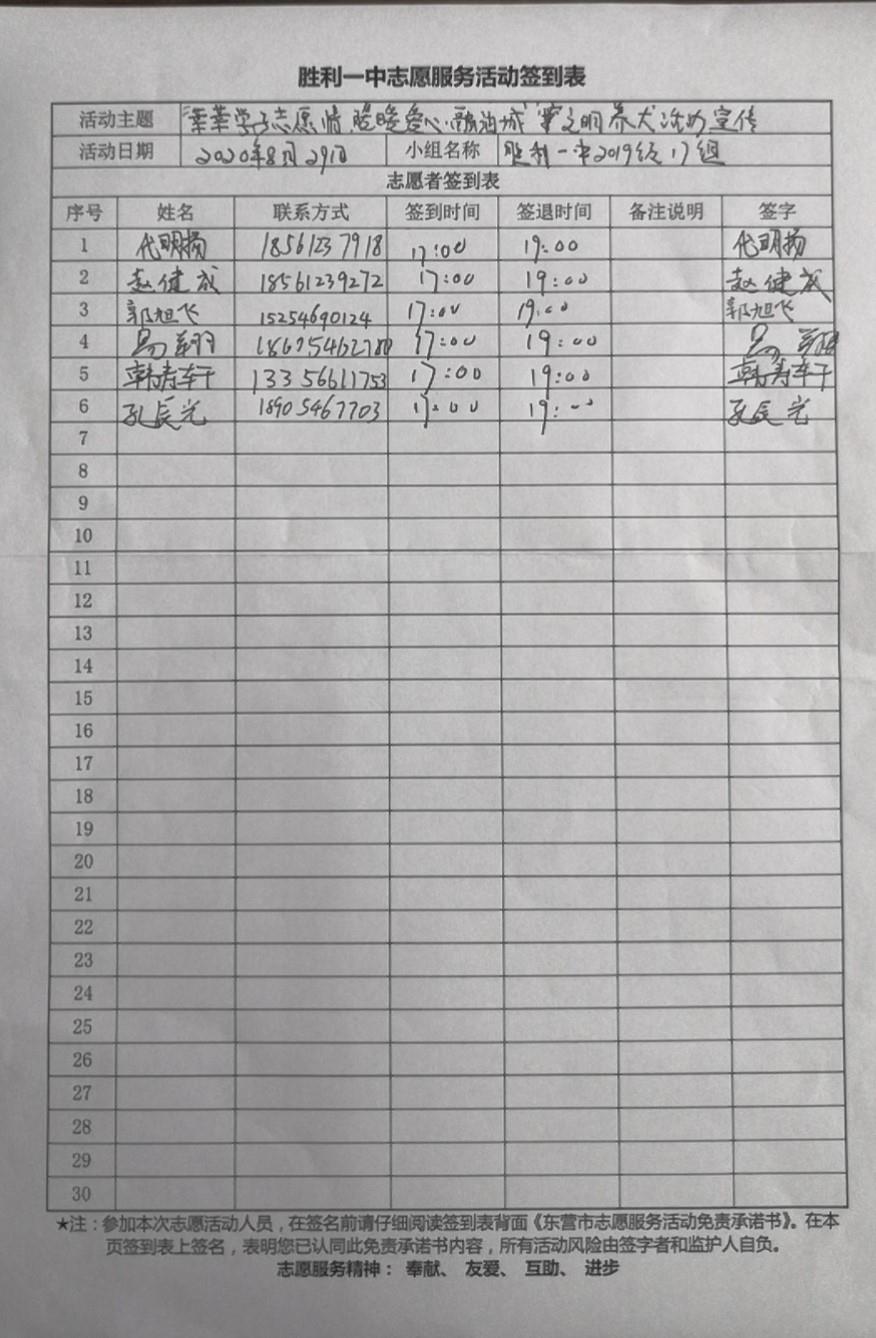 胜利一中志愿服务活动签到表
活动主题 莘莘学子志愿情 暖暖爱心融油城 文明养犬活动宣传
活动日期 2020年8月29日 小组名称 胜利一中2019级17组
志愿者签到表
序号 姓名 联系方式 签到时间 签退时间 备注说明 签字
1 代明扬 18561237918 17:00 19:00 代明扬
2 赵健成 18561239272 17:00 19:00 赵健成
3 郭旭飞 15254690124 17:00 19:00 郭旭飞
4 翔 17:00 19:00 翔
5 韩 13356611753 17:00 19:00 韩
6 孔辰光 18905467703 17:00 19:00 孔辰光
7
8
9
10
11
12
13
14
15
16
17
18
19
20
21
22
23
24
25
26
27
28
29
30
★注：参加本次志愿活动人员，在签名前请仔细阅读签到表背面《东营市志愿服务活动免责承诺书》。在本
页签到表上签名，表明您已认同此免责承诺书内容，所有活动风险由签字者和监护人自负。
志愿服务精神： 奉献、 友爱、 互助、 进步